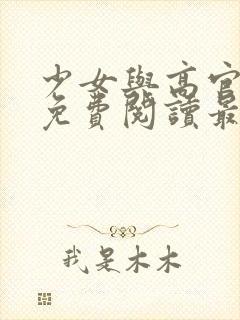 少女與高官
免費閱讀最
我是木木